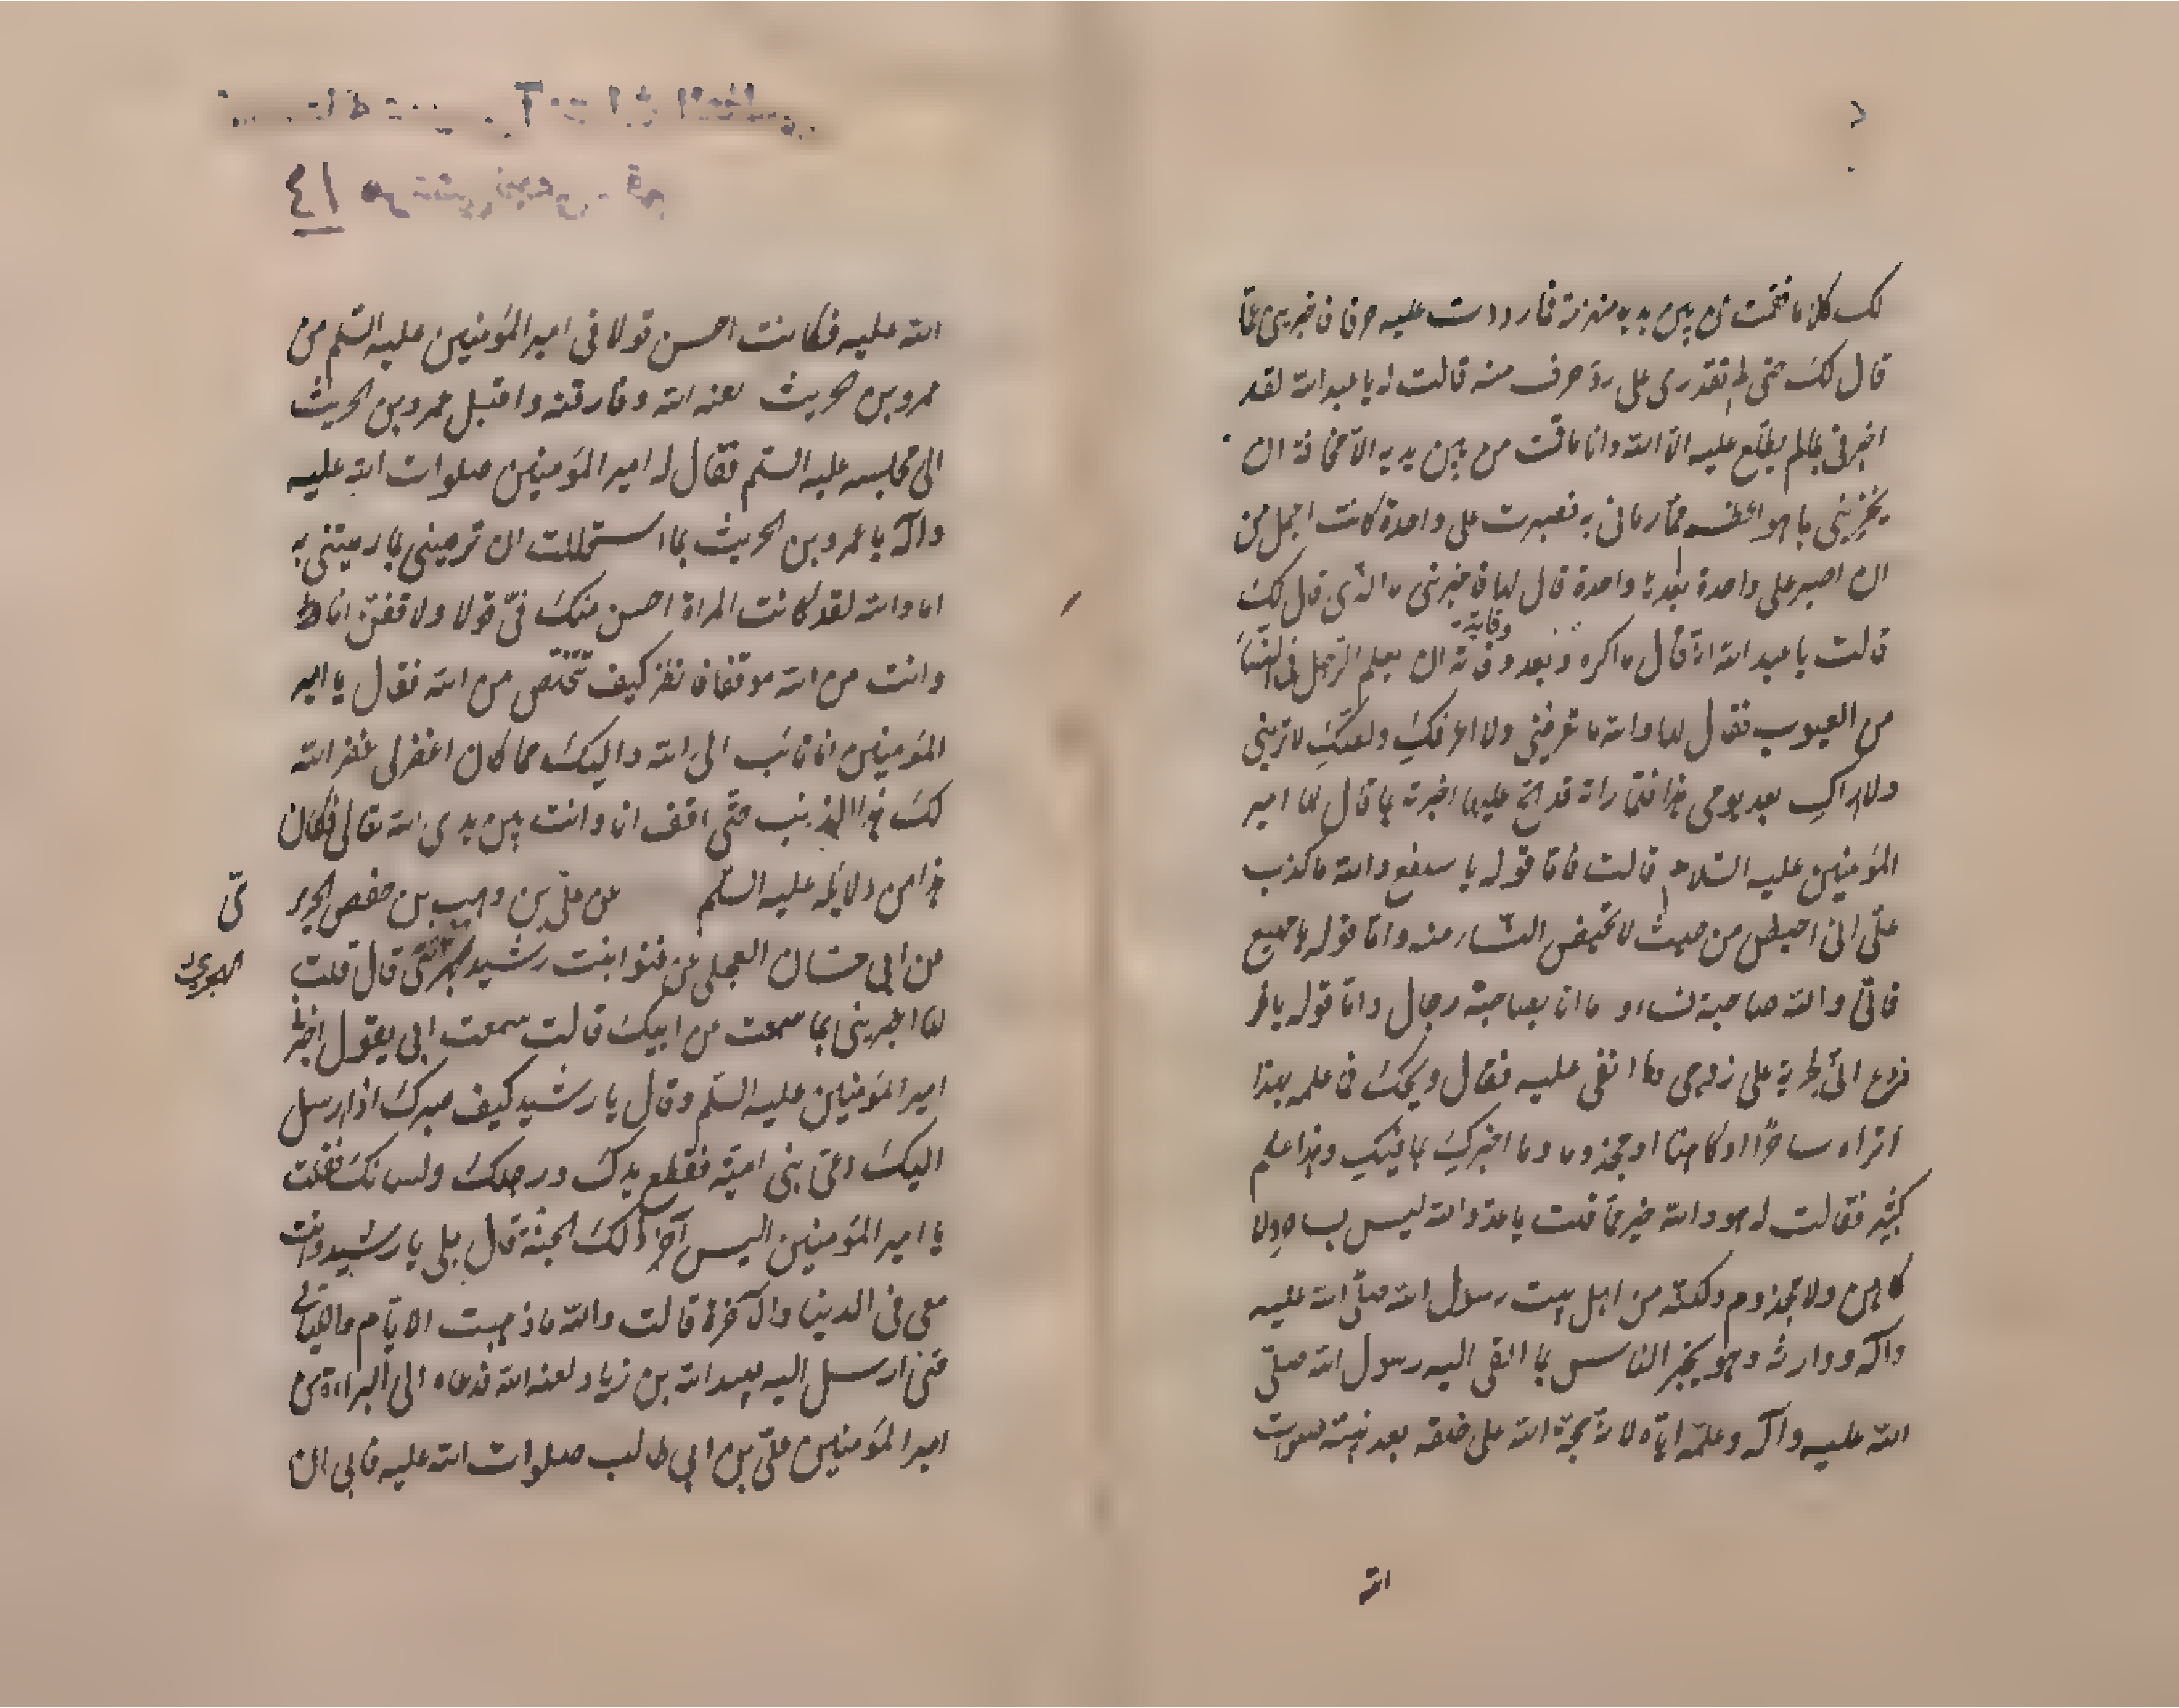 لك كلاما فقمت من بين يديه منهزمة فما رددت عليه حرفا فاخبريني عما
قال لك حتى لم تقدري على رد حرف منه قالت له يا عبد الله لقد
اخبرني بما لم يطلع عليه الا الله وانا ما قمت من بين يديه الا مخافة ان
يخبرني بما هو اعظم مما رماني به فصبرت على واحدة كانت اجمل من
ان اصبر على واحدة بعدها واحدة قال لها فاخبرني ما الذي قال لك
قالت يا عبد الله انه قال ما اكره وبعد فانه ان يعلم الرجل في النساء
من العيوب فقال لها والله ما تعرفيني ولا اعرفك ولعلك لا تريني
ولا اراك بعد يومي هذا فلما راته قد الح عليها اخبرته بما قال لها امير
المؤمنين عليه السلام قالت فاما قوله يا سلفع والله ما كذب
علي اني احيض من حيث لا تحيض النساء منه واما قوله يا مهيع
فاني والله صاحبة نساء وما انا بصاحبة رجال واما قوله يا
فردع اني المخربة على زوجي وما ابقي عليه فقال ويحك فما علمه بهذا
اتراه ساحرا او كاهنا او مجذوما وما اخبرك بما فيك وهذا علم
كثير فقالت له هو والله خير مما قلت يا عدو الله ليس بساحر ولا
كاهن ولا مجذوم ولكنه من اهل بيت رسول الله صلى الله عليه
وآله ووارثه وهو يخبر الناس بما القى اليه رسول الله صلى
الله عليه وآله وعلمه اياه لانه حجة الله على خلقه بعد نبيه صلوات
الله
الله عليه فكانت احسن قولا في امير المؤمنين عليه السلم من
عمرو بن حريث لعنه الله وفارقته واقبل عمرو بن الحريث
الى مجلسه عليه السلم فقال له امير المؤمنين صلوات الله عليه
وآله يا عمرو بن الحريث بما استحللت ان ترميني بما رميتني به
اما والله لقد كانت المراة احسن منك في قولا ولا قفن انا
وانت من الله موقفا فانظر كيف تتخلص من الله فقال يا امير
المؤمنين انا تائب الى الله واليك مما كان اغفر لي غفر الله
لك هذا الذنب حتى اقف انا وانت بين يدي الله تعالى فكان
هذا من دلايله عليه السلم عن علي بن وهيب بن حفص الجرير
عن ابي حسان العجلي عن قنوا بنت رشيد الهجري قال قلت
لها اخبريني بما سمعت من ابيك قالت سمعت ابي يقول اخبرني
امير المؤمنين عليه السلم وقال يا رشيد كيف صبرك اذا ارسل
اليك دعي بني امية فقطع يدك ورجلك ولسانك فقلت
يا امير المؤمنين اليس آخر ذلك الجنة قال بلى يا رشيد وانت
معي في الدنيا والآخرة قالت والله ما ذهبت الايام والليالي
حتى ارسل اليه عبيد الله بن زياد لعنه الله فدعاه الى البراءة من
امير المؤمنين علي بن ابي طالب صلوات الله عليه فابى ان